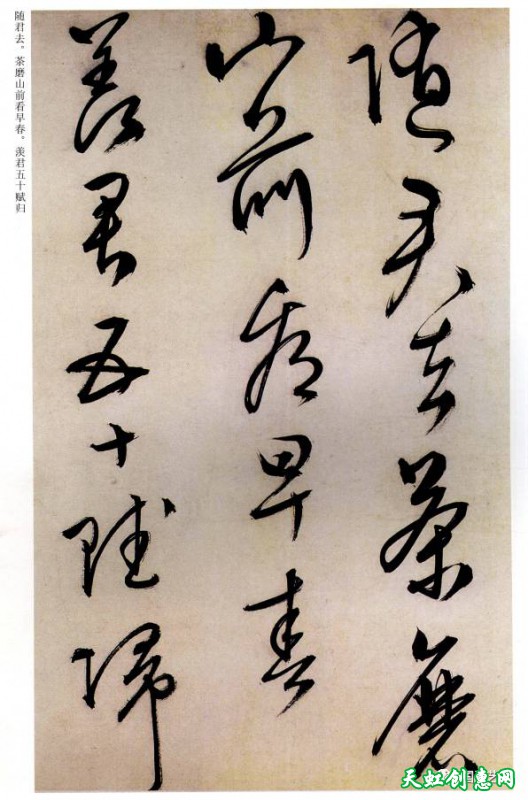 随君去茶磨
山前看早春
羡君五十赋归
随君去。茶磨山前看早春。羡君五十赋归
天虹创意网